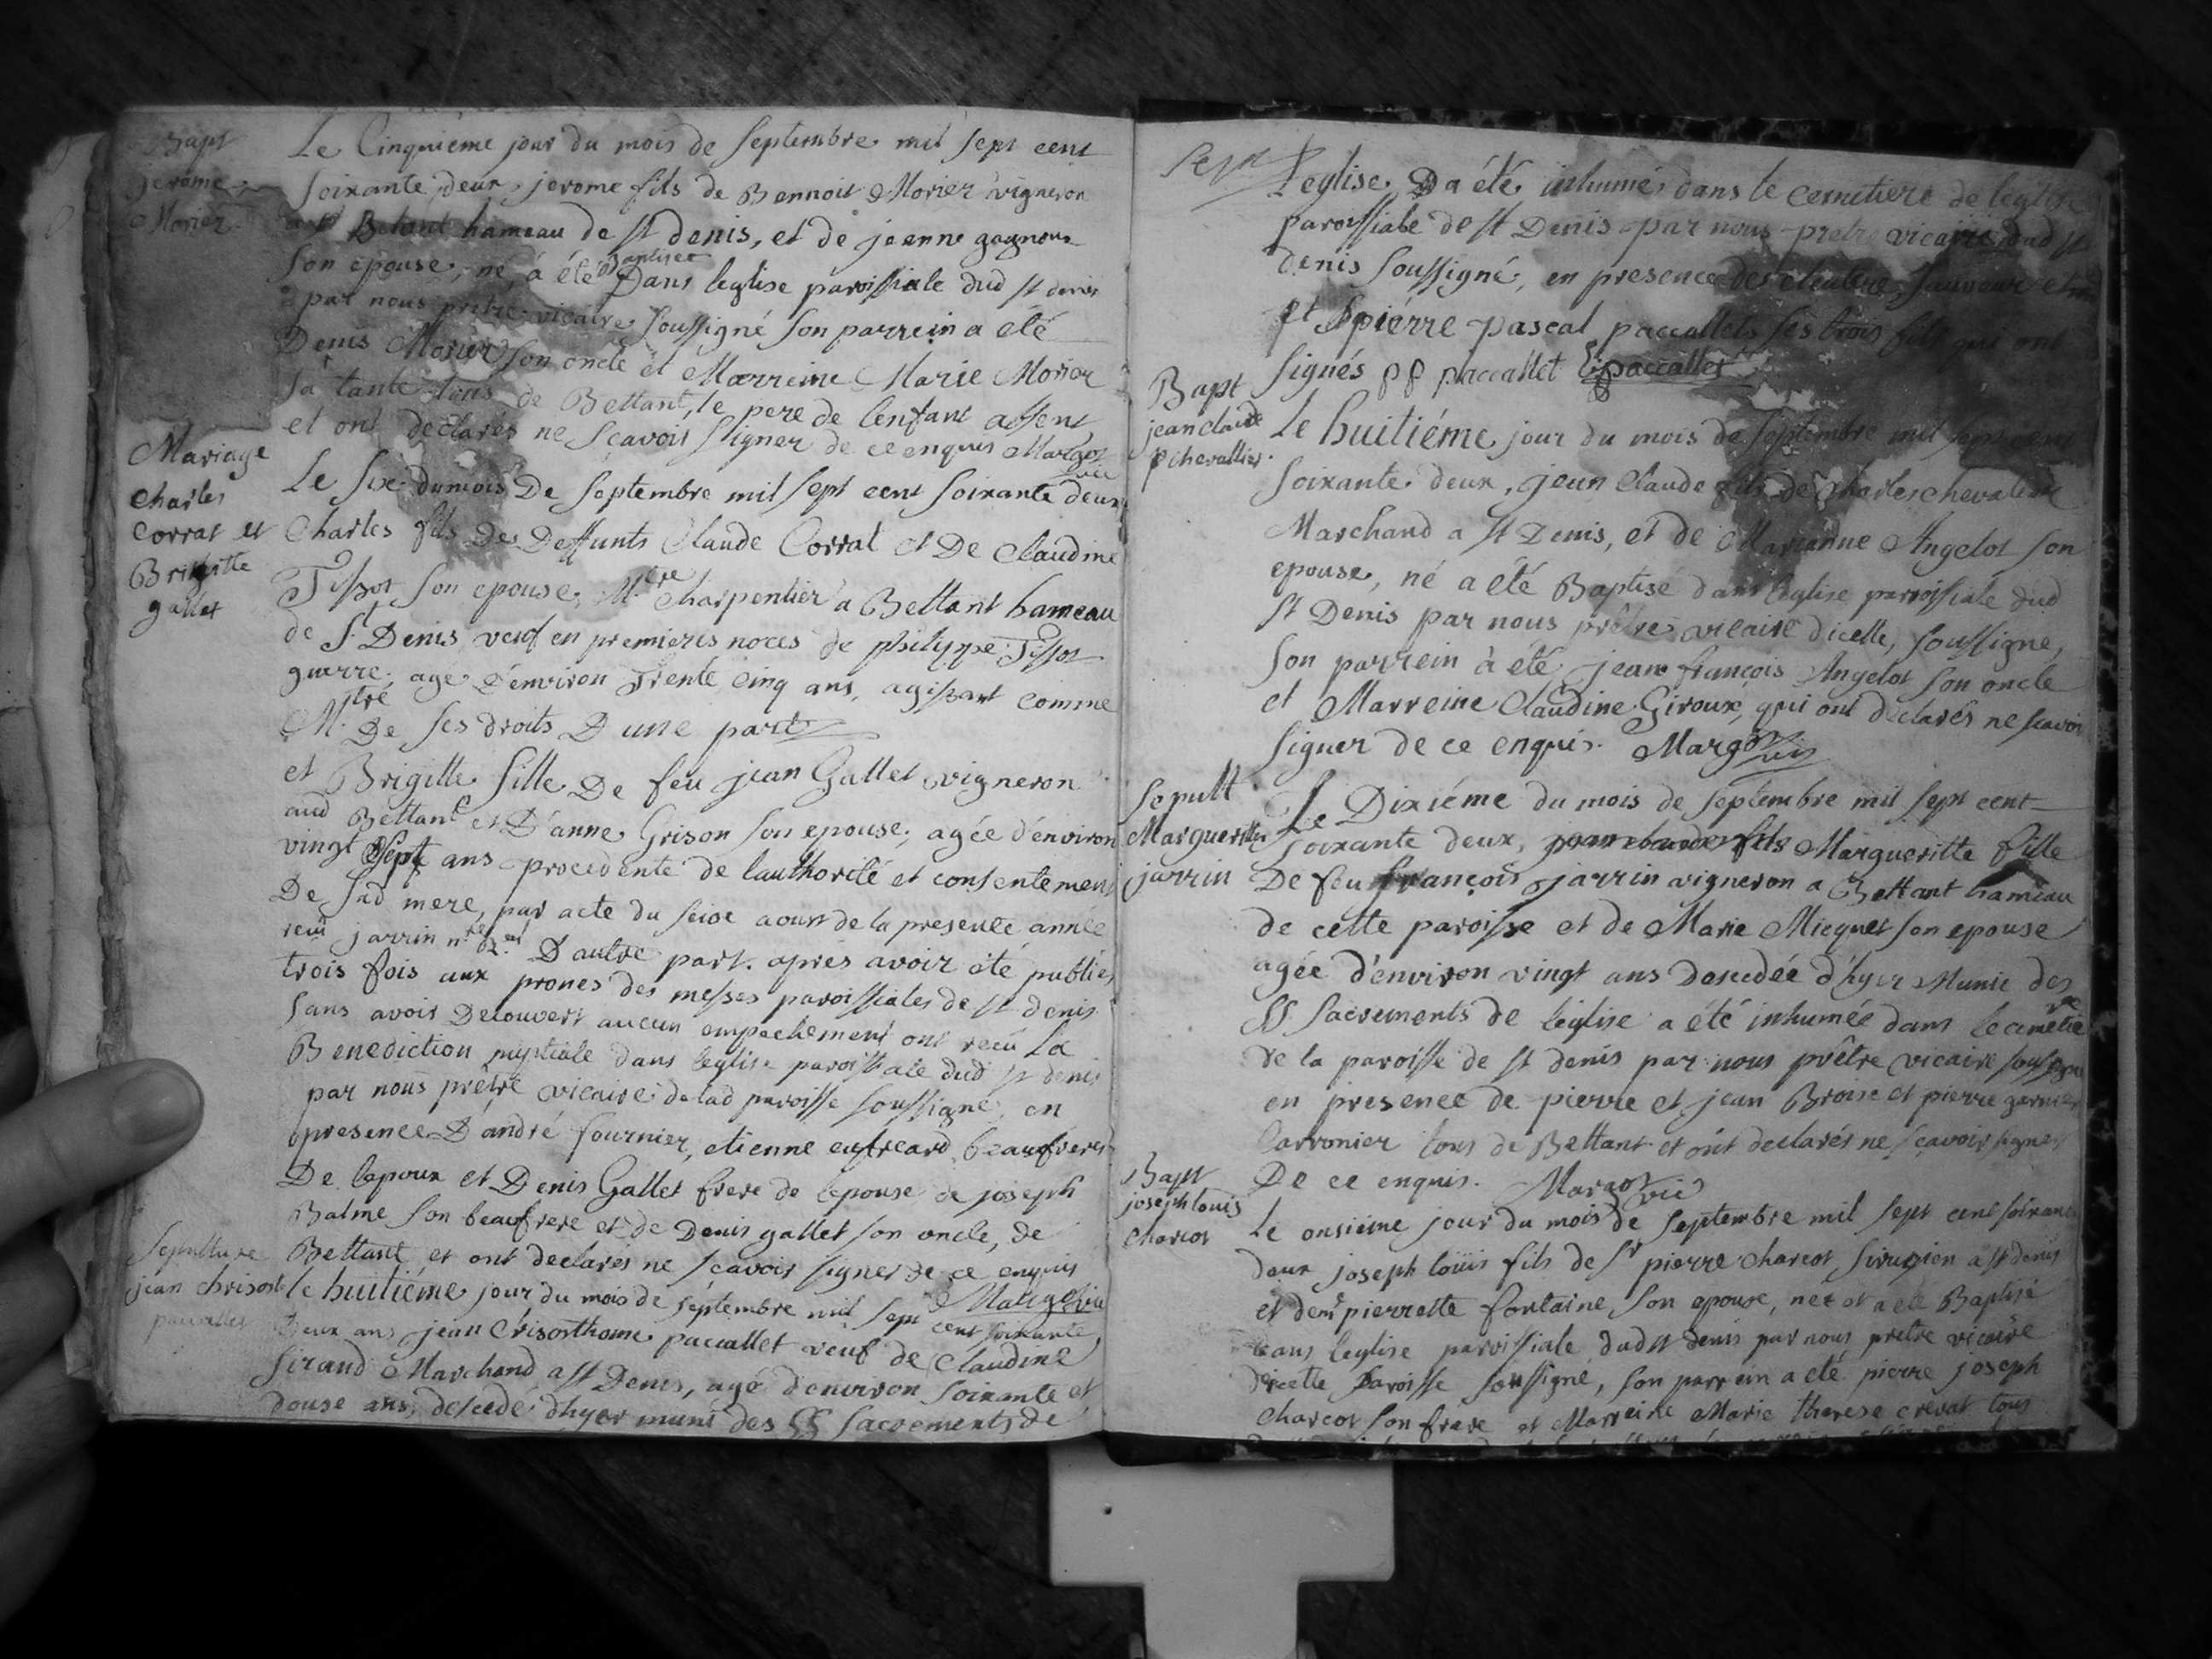 Bapt
jerome
Morier
Le Cinquiéme jour du mois de septembre mil sept cent
soixante deux, jerome fils de Bennoit Morier vigneron
Betant hameau de st denis, et de jeanne gagneux
son epouse, né, a été Baptisé Dans leglise paroissiale dud st denis
par nous prêtre vicaire soussigné son parrein a eté
Denis Morier son oncle et Marreine Marie Morier
sa tante tous de Bettant, le pere de lenfant absent
et ont declarés ne scavoir signer de ce enquis Margot
vic
Mariage
Charles
Corrat et
Brigitte
gallet
Le six du mois De septembre mil sept cent soixante deux
Charles fils Des Deffunts Claude Corrat et De Claudine
Tissot son epouse, M.tre Charpentier a Bettant hameau
de St Denis veuf en premieres noces de philippe Tissot
guerre, agé d'environ Trente cinq ans, agissant comme
M.tre De ses droits D'une part
et Brigitte fille De feu jean Gallet vigneron
aud Bettant et D'anne Grison son epouse, agée d'environ
vingt sept ans procedente de lauthorité et consentement
De sad mere, par acte du seize aoust de la presente année
reçu jarrin nre D'autre part. apres avoir été publiés
trois fois aux prones des messes paroissiales de st denis
sans avoir Decouvert aucun empechement ont reçu La
Benediction nuptiale dans leglise paroissiale dud st denis
par nous prêtre vicaire de lad paroisse soussigné, en
presence D'andré fournier, etienne beaufreres
De lepoux et Denis Gallet frere de lepouse de joseph
Balme son beaufrere et de Denis gallet son oncle, de
Bettant et ont declarés ne scavoir signer de ce enquis
Margot vic
Sepulture
jean chrisost
paccallet
le huitiéme jour du mois de septembre mil sept cent soixante
Deux ans jean Crisosthome paccallet veuf de Claudine
sirand Marchand a st Denis, agé d'environ soixante et
douse ans, descedé d'hyer muni des SS sacrements de
Sept
Leglise, a été inhumé dans le cemetiere de leglise
paroissiale de st Denis par nous prêtre vicaire dud st
denis soussigné, en presence de
et pierre pascal paccallets ses trois fils qui ont
signés pp paccallet paccallet
Bapt
jean claude
chevallier
Le huitiéme jour du mois de septembre mil sept cent
soixante deux, jean Claude fils de Charles
Marchand a st Denis, et de Marianne Angelot son
epouse, né a eté Baptisé dans leglise paroissiale dud
st Denis par nous prêtre vicaire dicelle, soussigné,
son parrein à eté jean françois Angelot son oncle
et Marreine Claudine Giroux, qui ont declarés ne scavoir
signer de ce enquis. Margot vic
Sepult
Margueritte
jarrin
Le Dixiéme du mois de septembre mil sept cent
soixante deux, jean claude fils Margueritte fille
De feu françois jarrin vigneron a Bettant hameau
de cette paroisse et de Marie Micquet son epouse
agée d'environ vingt ans descedée d'hyer Munie des
SS sacrements de leglise a été inhumée dans le cimetiere
de la paroisse de st denis par nous prêtre vicaire soussigné
en presence de pierre et jean Broise et pierre garnier
tous de Bettant et ont declarés ne scavoir signer
De ce enquis. Margot vic
Bapt
joseph louis
Charcot
Le onsiéme jour du mois de septembre mil sept cent soixante
deux joseph loüis fils de Sr pierre Charcot sirugien a st denis
et dem pierrette fontaine son epouse, a eté Baptisé
dans leglise paroissiale dud st denis par nous prêtre vicaire
dicelle Paroisse soussigné, son parrein a eté pierre joseph
Charcot son frere et Marreine Marie therese crevat tous